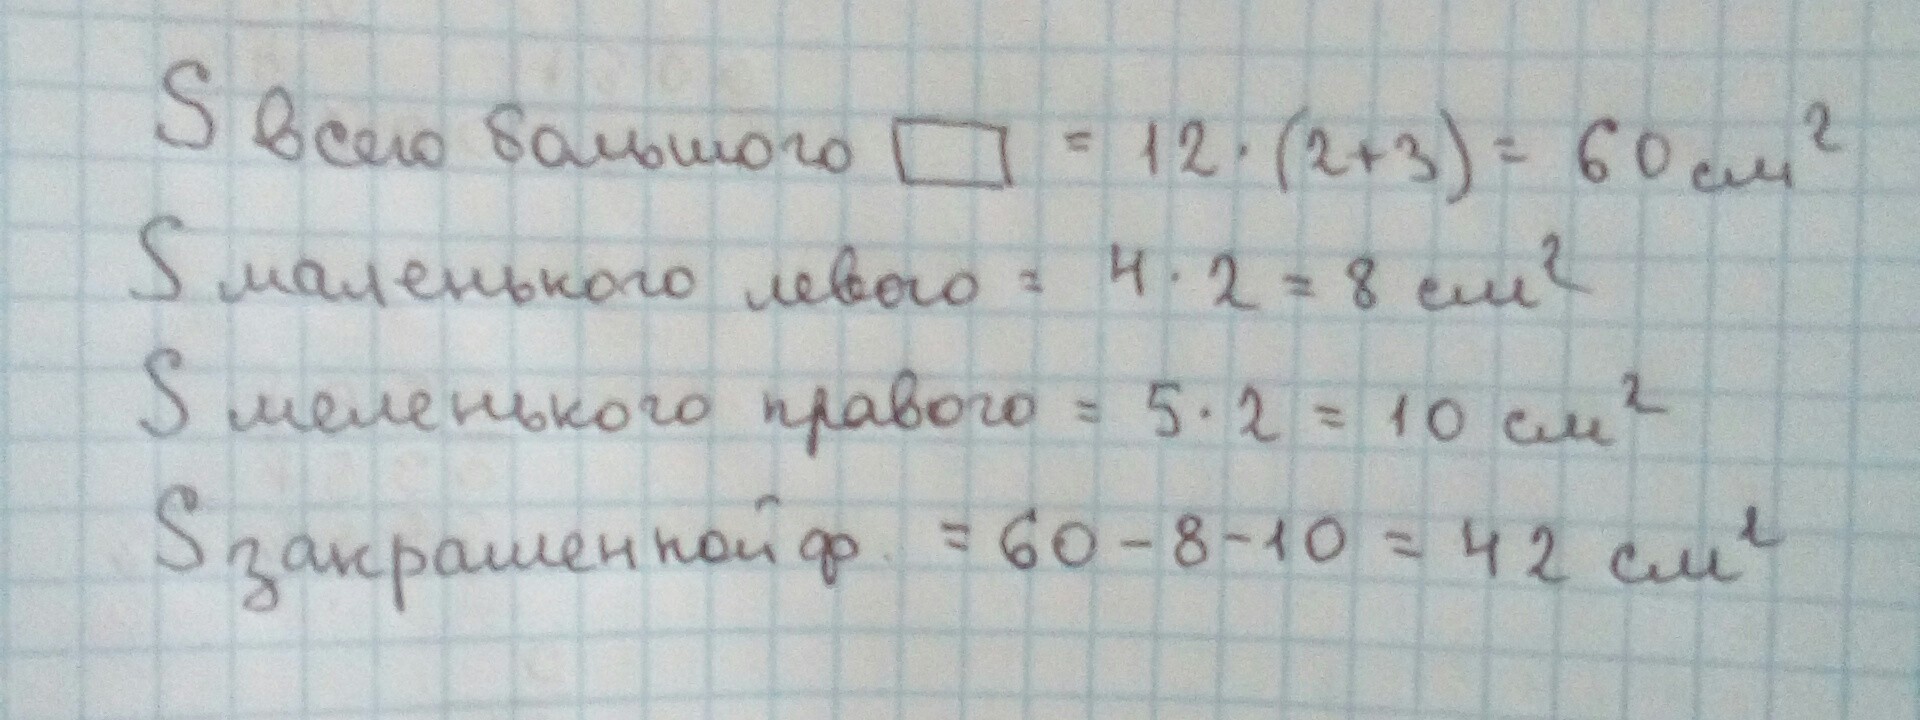 S всего большого ▭ = 12·(2+3) = 60 см²
S маленького левого = 4·2 = 8 см²
S меленького правого = 5·2 = 10 см²
S закрашенной ф. = 60-8-10 = 42 см²